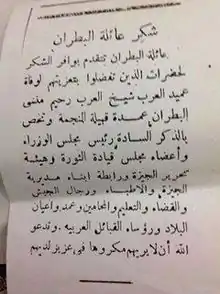 شكر عائلة البطران
عائلة البطران تتقدم بوافر الشكر
لحضرات الذين تفضلوا بتعزيتهم لوفاة
عميد العرب شيخ العرب رحيم منسى
البطران عمدة قبيلة النجمة وتخص
بالذكر السادة رئيس مجلس الوزراء
وأعضاء مجلس قيادة الثورة وهيئة
تحرير الجيزة ورابطة ابناء مديرية
الجيزة والاطباء ورجال الجيش
والقضاء والتعليم والمحامين وعمد واعيان
البلاد ورؤساء القبائل العربيه وتدعو
الله أن لا يريهم مكروها فى عزيز لديهم